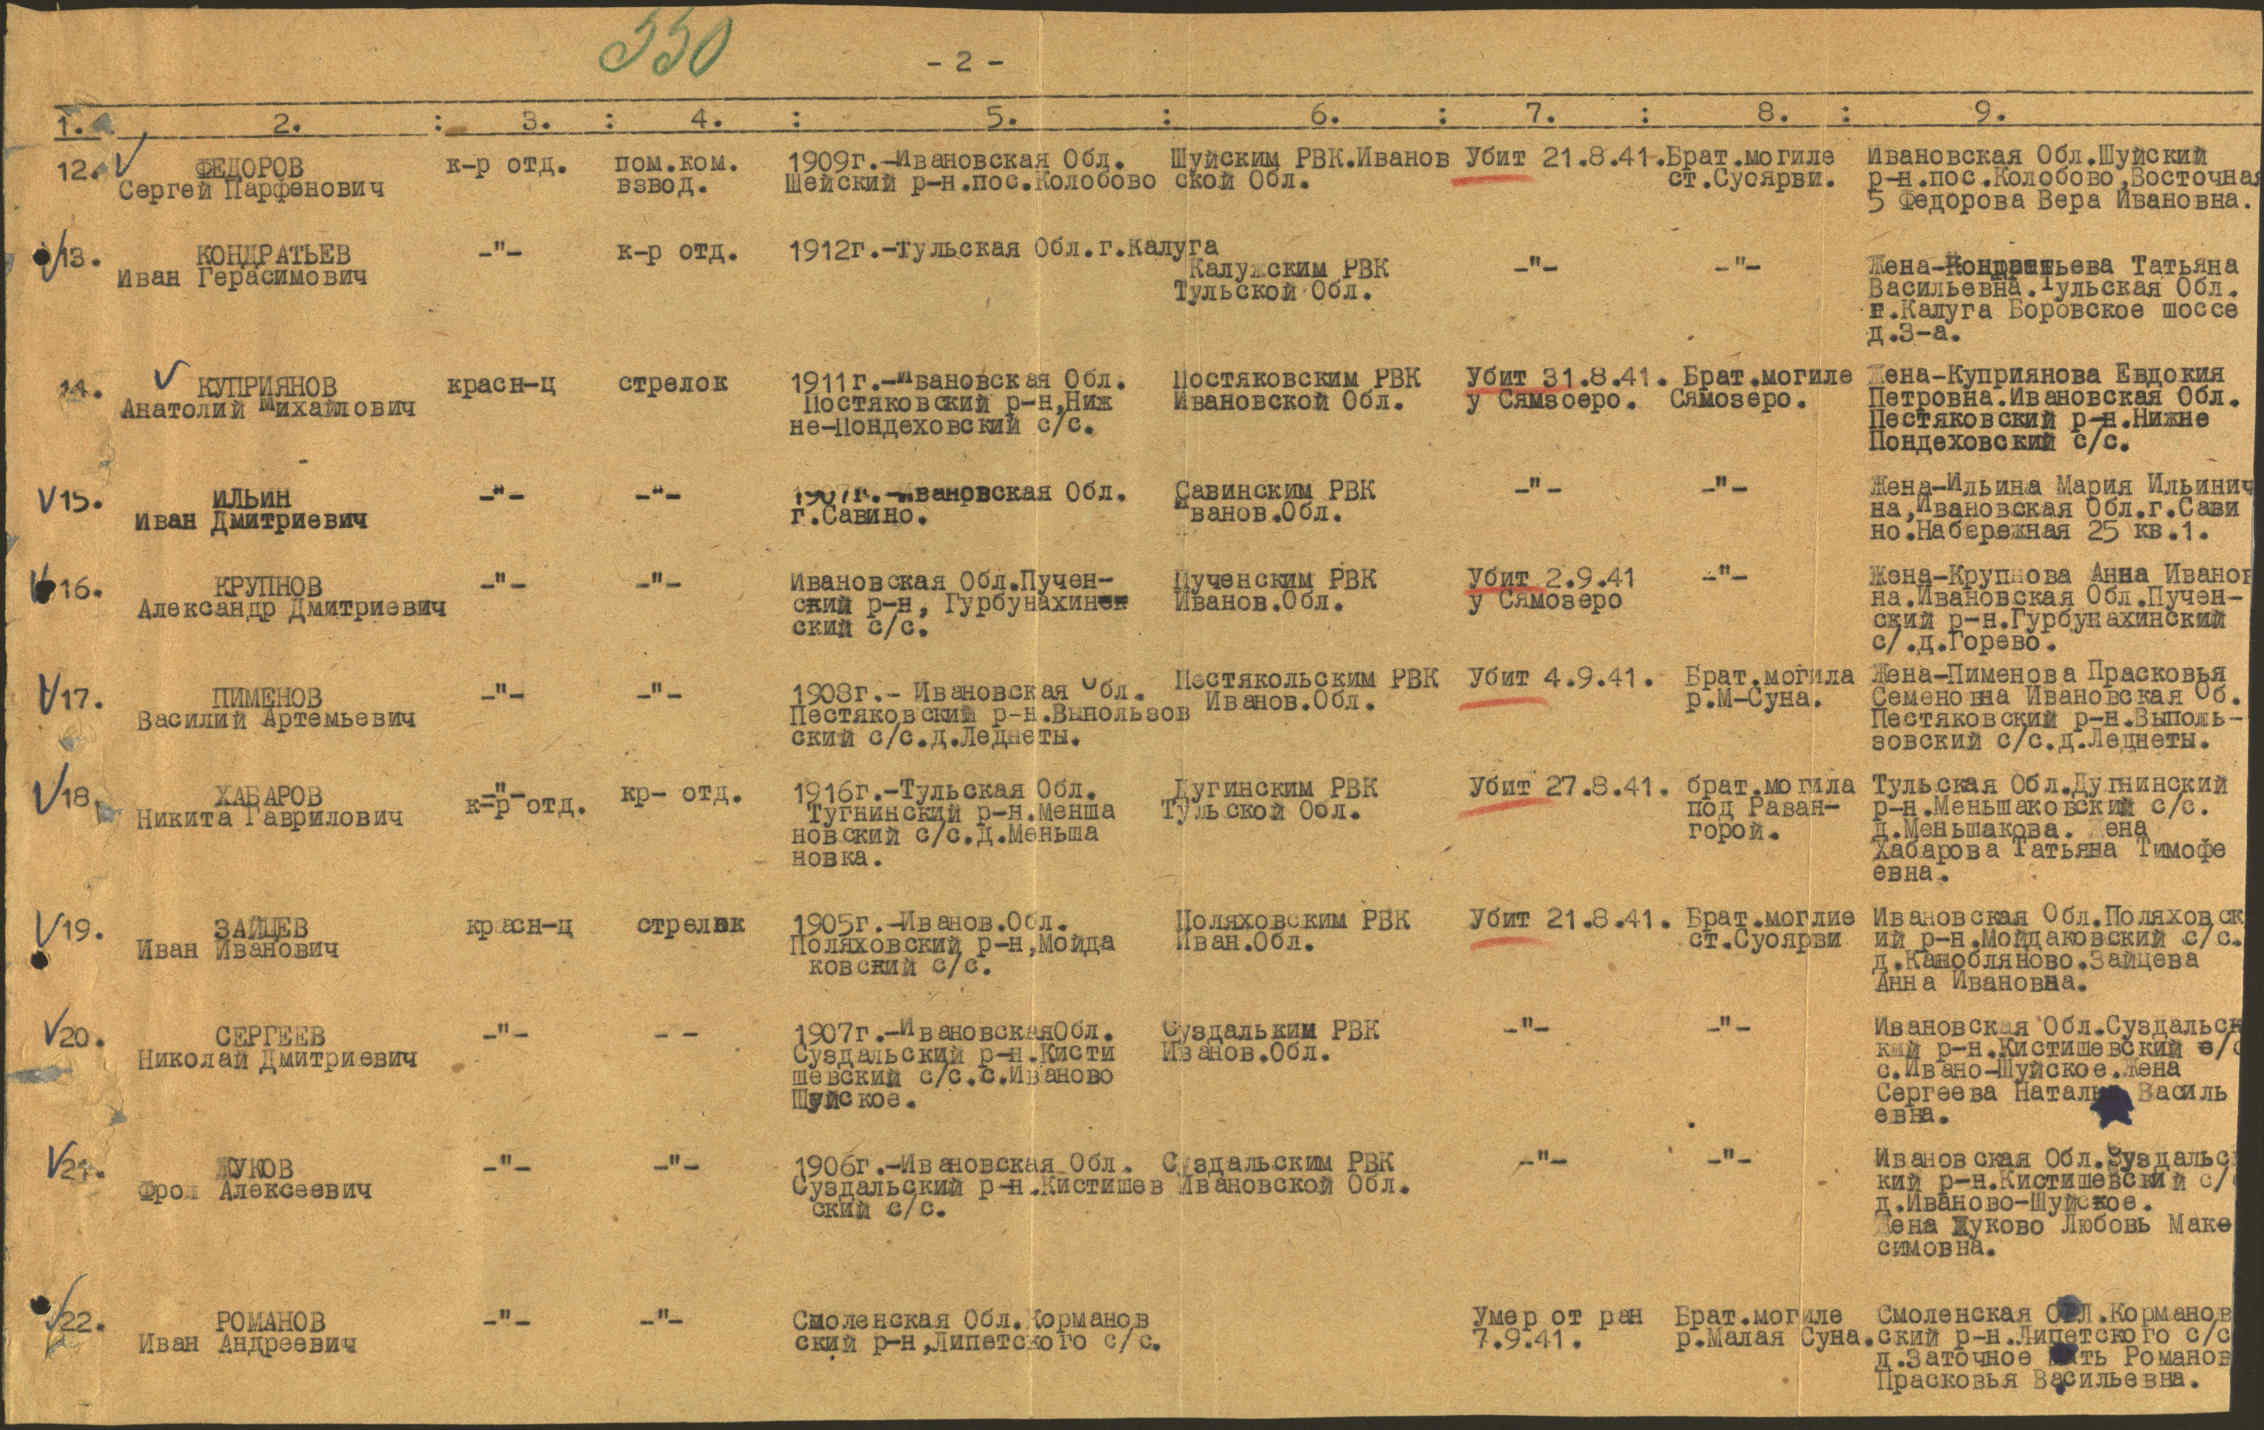 550
- 2 -
1. 2. : 3. : 4. : 5. : 6. : 7. : 8. : 9.
12. ФЕДОРОВ к-р отд. пом.ком. 1909г.-Ивановская Обл. Шуйским РВК.Иванов Убит 21.8.41. Брат.могиле Ивановская Обл.Шуйский
Сергей Парфенович взвод. Шейский р-н.пос.Колобово ской Обл. ст.Суоярви. р-н.пос.Колобово,Восточная
5 Федорова Вера Ивановна.
13. КОНДРАТЬЕВ -"- к-р отд. 1912г.-Тульская Обл.г.Калуга
Иван Герасимович Калужским РВК -"- -"- Жена-Кондратьева Татьяна
Тульской Обл. Васильевна.Тульская Обл.
г.Калуга Боровское шоссе
д.3-а.
14. КУПРИЯНОВ красн-ц стрелок 1911г.-Ивановская Обл. Постяковским РВК Убит 31.8.41. Брат.могиле Жена-Куприянова Евдокия
Анатолий Михайлович Постяковский р-н,Ниж Ивановской Обл. у Сямзоеро. Сямозеро. Петровна.Ивановская Обл.
не-Пондеховский с/с. Пестяковский р-н.Нижне
Пондеховский с/с.
15. ИЛЬИН -"- -"- 1907г.-Ивановская Обл. Савинским РВК -"- -"- Жена-Ильина Мария Ильинич
Иван Дмитриевич г.Савино. Иванов.Обл. на,Ивановская Обл.г.Сави
но.Набережная 25 кв.1.
16. КРУПНОВ -"- -"- Ивановская Обл.Пучен- Пученским РВК Убит 2.9.41 -"- Жена-Крупнова Анна Иванов
Александр Дмитриевич ский р-н, Гурбунахин Иванов.Обл. у Сямозеро на.Ивановская Обл.Пучен-
ский с/с. ский р-н.Гурбунахинский
с/.д.Горево.
17. ПИМЕНОВ -"- -"- 1908г.- Ивановская Обл. Пестякольским РВК Убит 4.9.41. Брат.могила Жена-Пименова Прасковья
Василий Артемьевич Пестяковский р-н.Выпользов Иванов.Обл. р.М-Суна. Семеновна Ивановская Об.
ский с/с.д.Леднеты. Пестяковский р-н.Выполь-
зовский с/с.д.Леднеты.
18. ХАБАРОВ -"- кр- отд. 1916г.-Тульская Обл. Дугинским РВК Убит 27.8.41. брат.могила Тульская Обл.Дугнинский
Никита Гаврилович к-р отд. Тугнинский р-н.Менша Тульской Обл. под Раван- р-н.Меньшаковский с/с.
новский с/с.д.Меньша горой. д.Меньшакова. Жена
новка. Хабарова Татьяна Тимофе
евна.
19. ЗАЙЦЕВ красн-ц стрелок 1905г.-Иванов.Обл. Поляховским РВК Убит 21.8.41. Брат.моглие Ивановская Обл.Поляховск
Иван Иванович Поляховский р-н,Мойда Иван.Обл. ст.Суоярви ий р-н.Мойдаковский с/с.
ковский с/с. д.Каноблянoво.Зайцева
Анна Ивановна.
20. СЕРГЕЕВ -"- - - 1907г.-ИвановскаяОбл. Суздальким РВК -"- -"- Ивановская Обл.Суздальск
Николай Дмитриевич Суздальский р-н.Кисти Иванов.Обл. кий р-н.Кистишевский с/с
шевский с/с.с.Иваново с.Ивано-Шуйское.Жена
Шуйское. Сергеева Наталья Василь
евна.
21. ЖУКОВ -"- -"- 1906г.-Ивановская Обл. Суздальским РВК -"- -"- Ивановская Обл.Суздальс
Фрол Алексеевич Суздальский р-н.Кистишев Ивановской Обл. кий р-н.Кистишевский с/
ский с/с. д.Иваново-Шуйское.
Жена Жуково Любовь Макс
симовна.
22. РОМАНОВ -"- -"- Смоленская Обл.Корманов Умер от ран Брат.могиле Смоленская Обл.Корманов
Иван Андреевич ский р-н,Липетского с/с. 7.9.41. р.Малая Суна. ский р-н.Липетского с/с
д.Заточное Мать Романов
Прасковья Васильевна.